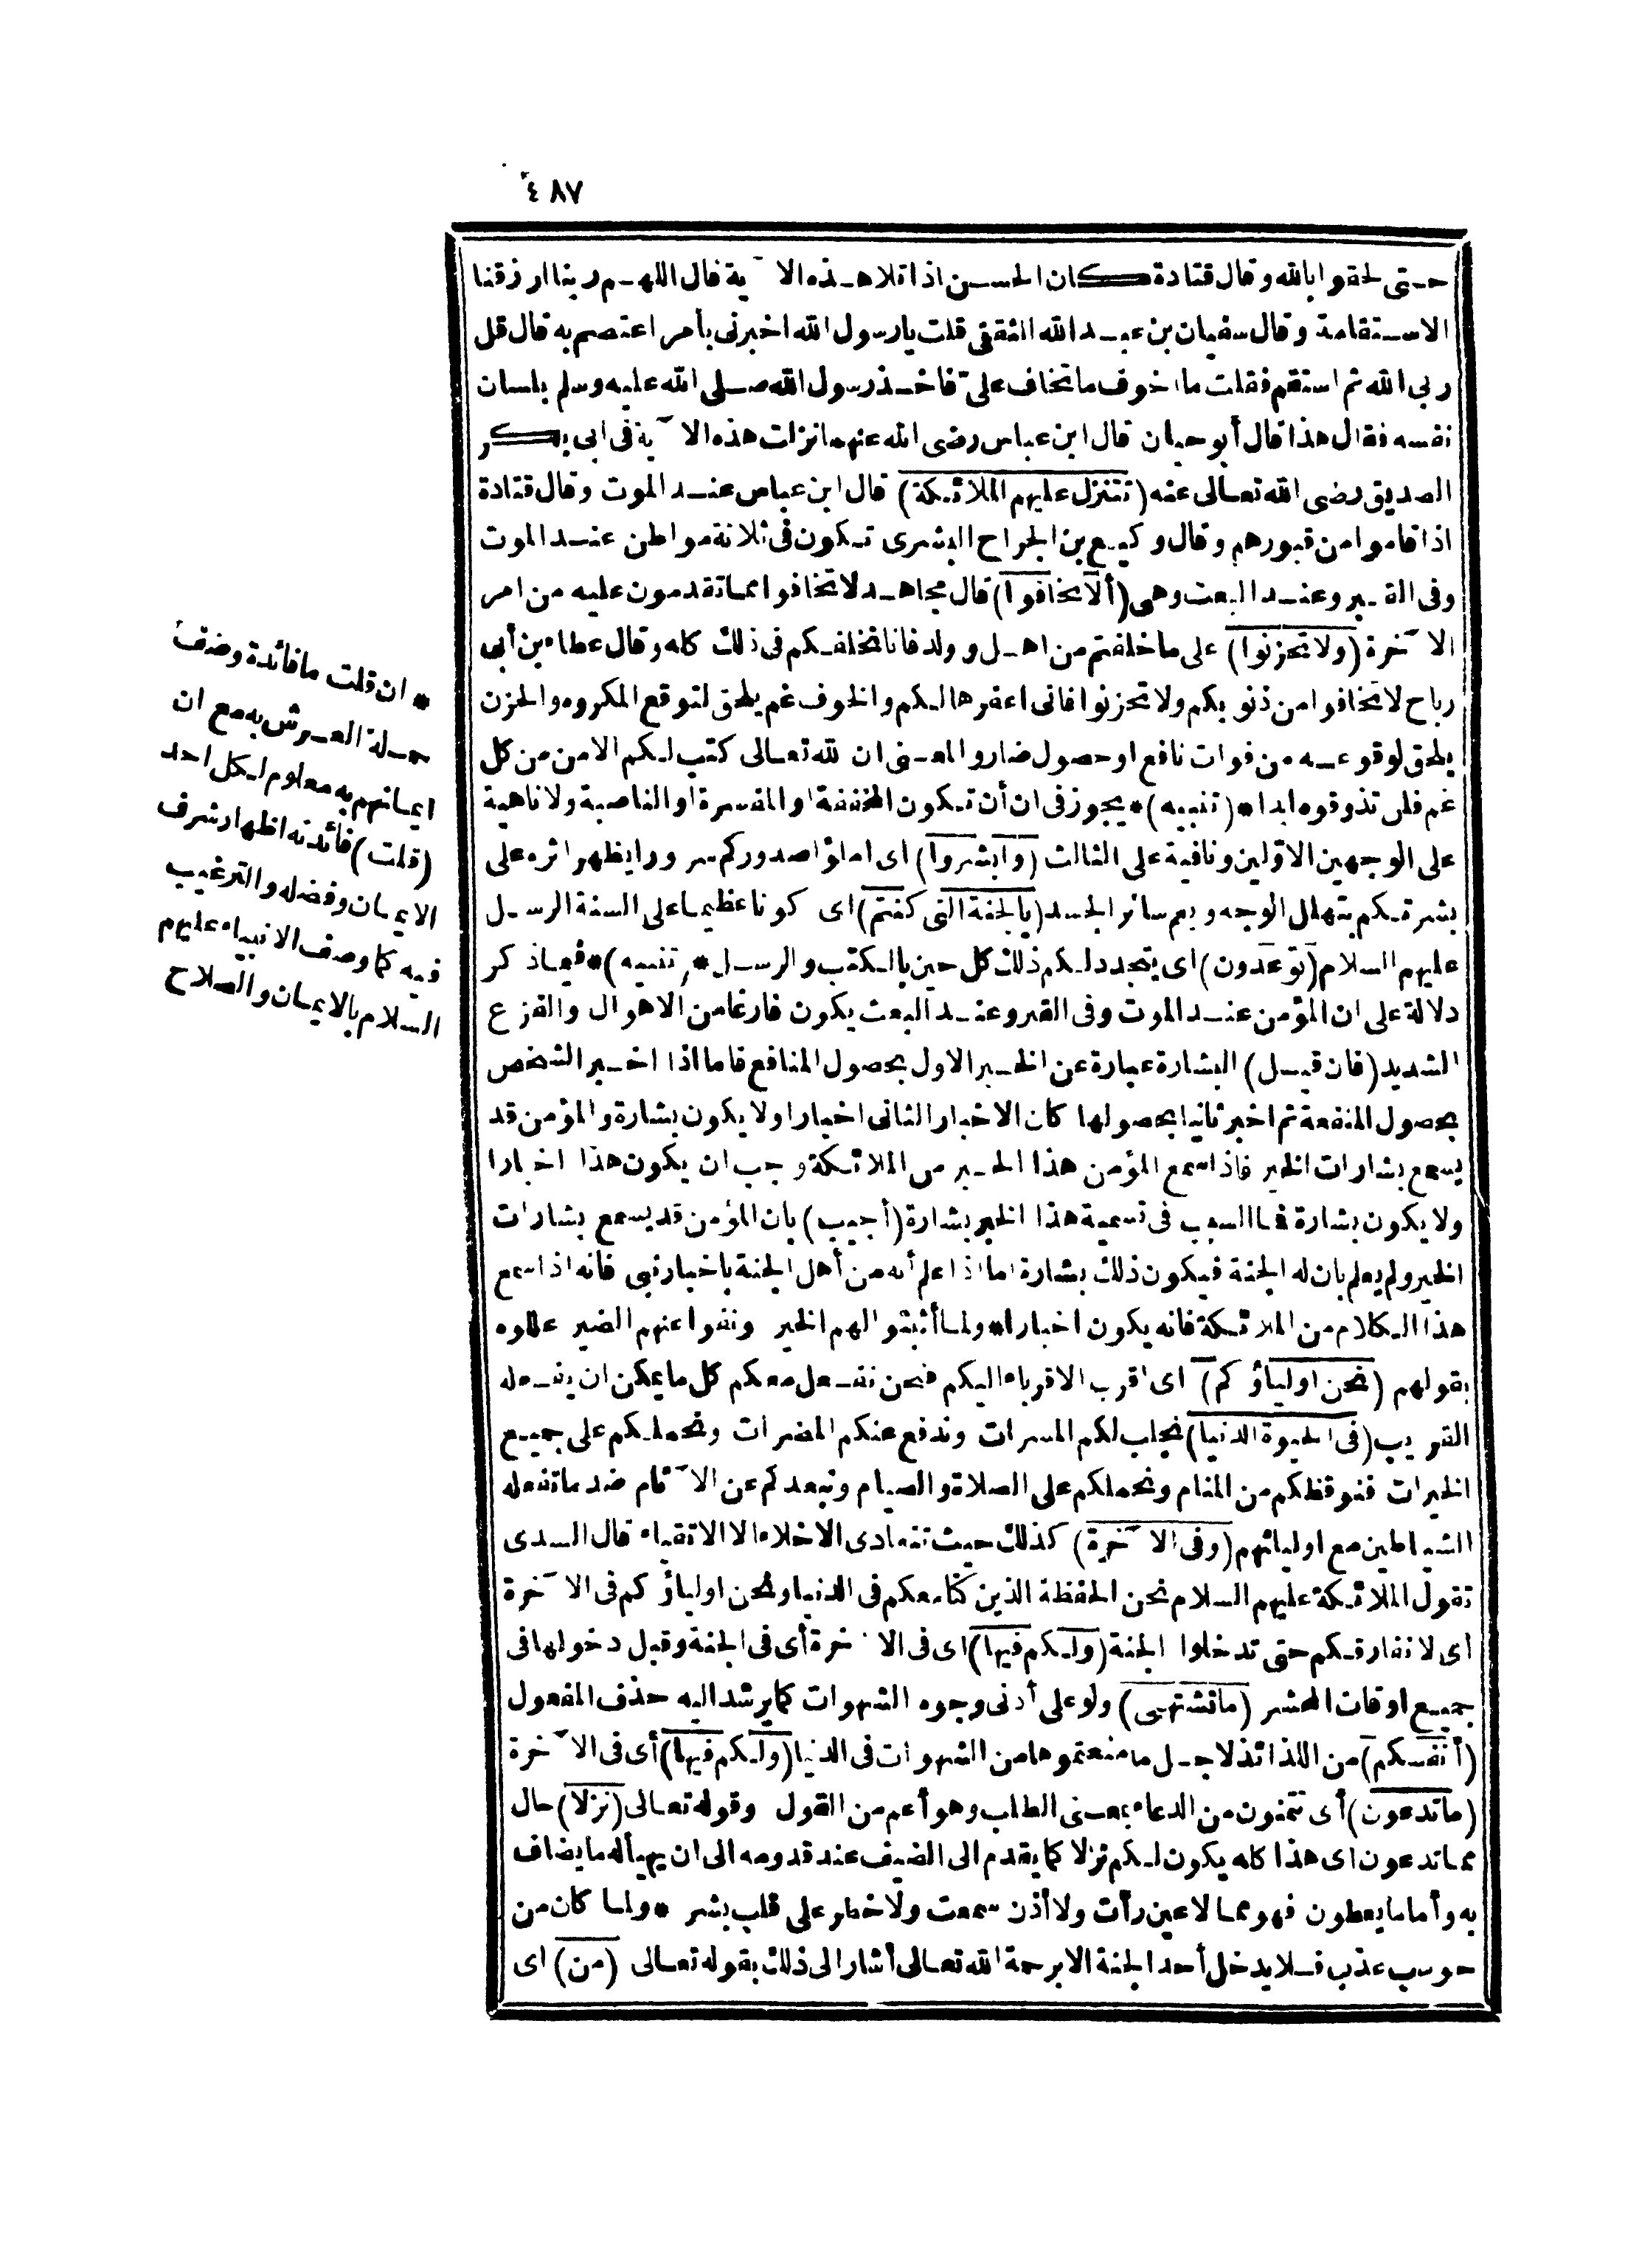 ٤٨٧
حتى لحقوا بالله وقال قتادة كان الحسن اذا تلا هذه الآية قال اللهم ربنا ارزقنا
الاستقامة وقال سفيان بن عبد الله الثقفي قلت يا رسول الله اخبرنى بأمر اعتصم به قال قل
ربى الله ثم استقم فقلت ما اخوف ما تخاف علىّ فاخذ رسول الله صلى الله عليه وسلم بلسان
نفسه فقال هذا قال أبو حيان قال ابن عباس رضى الله عنهما نزلت هذه الآية فى ابى بكر
الصديق رضى الله تعالى عنه (تتنزل عليهم الملائكة) قال ابن عباس عند الموت وقال قتادة
اذا قاموا من قبورهم وقال وكيع بن الجراح البشرى تكون فى ثلاثة مواطن عند الموت
وفى القبر وعند البعث وهى (ألّا تخافوا) قال مجاهد لا تخافوا مما تقدمون عليه من امر
الآخرة (ولا تحزنوا) على ما خلفتم من اهل وولد فانا نخلفكم فى ذلك كله وقال عطاء بن أبى
رباح لا تخافوا من ذنوبكم ولا تحزنوا فانى اغفرها لكم والخوف غم يلحق لتوقع المكروه والحزن
يلحق لوقوعه من فوات نافع او حصول ضار والمعنى ان لله تعالى كتب لكم الامن من كل
غم فلن تذوقوه ابدا * (تنبيه) * يجوز فى ان أن تكون المخففة او المفسرة او الناصبة ولا ناهية
على الوجهين الاوّلين ونافية على الثالث (وابشروا) اى املؤا صدوركم سرورا يظهر اثره على
بشرتكم بتهلل الوجه ويعم سائر الجسد (بالجنة التى كنتم) اى كونا عظيما على السنة الرسل
عليهم السلام (توعدون) اى يتجدد لكم ذلك كل حين بالكتب والرسل * (تنبيه) * فيما ذكر
دلالة على ان المؤمن عند الموت وفى القبر وعند البعث يكون فارغا من الاهوال والفزع
الشديد (فان قيل) البشارة عبارة عن الخبر الاول بحصول المنافع فاما اذا اخبر الشخص
بحصول المنفعة ثم اخبر ثانيا بحصولها كان الاخبار الثانى اخبارا ولا يكون بشارة والمؤمن قد
يسمع بشارات الخير فاذا سمع المؤمن هذا الخبر من الملائكة وجب ان يكون هذا اخبارا
ولا يكون بشارة فما السبب فى تسمية هذا الخبر بشارة (أجيب) بان المؤمن قد يسمع بشارات
الخير ولم يعلم بان له الجنة فيكون ذلك بشارة اما اذا علم أنه من أهل الجنة باخبار نبى فانه اذا سمع
هذا الكلام من الملائكة فانه يكون اخبارا * ولما أثبتوا لهم الخير ونفوا عنهم الضير عللوه
بقولهم (نحن اولياؤكم) اى اقرب الاقرباء اليكم فنحن نفعل معكم كل ما يمكن ان يفعله
القريب (فى الحيوة الدنيا) نجلب لكم المسرات وندفع عنكم المضرات ونحملكم على جميع
الخيرات فنوقظكم من المنام ونحملكم على الصلاة والصيام ونبعدكم عن الآثام ضد ما تفعله
الشياطين مع اوليائهم (وفى الآخرة) كذلك حيث تتعادى الاخلاء الا الاتقياء قال السدى
تقول الملائكة عليهم السلام نحن الحفظة الذين كنا معكم فى الدنيا ونحن اولياؤكم فى الآخرة
اى لا نفارقكم حتى تدخلوا الجنة (ولكم فيها) اى فى الآخرة أى فى الجنة وقبل دخولها فى
جميع اوقات المحشر (ما تشتهى) ولو على أدنى وجوه الشهوات كما يرشد اليه حذف المفعول
(أنفسكم) من اللذائذ لاجل ما منعتموها من الشهوات فى الدنيا (ولكم فيها) أى فى الآخرة
(ما تدعون) أى تتمنون من الدعاء بمعنى الطلب وهو أعم من القول وقوله تعالى (نزلا) حال
مما تدعون اى هذا كله يكون لكم نزلا كما يقدم الى الضيف عند قدومه الى ان يهيأ له ما يضاف
به وأما ما يعطون فهو مما لا عين رأت ولا أذن سمعت ولا خطر على قلب بشر * ولما كان من
حوسب عذب فلا يدخل أحد الجنة الا برحمة الله تعالى أشار الى ذلك بقوله تعالى (من) اى
* ان قلت ما فائدة وصف
حملة العرش به مع ان
ايمانهم به معلوم لكل احد
(قلت) فائدته اظهار شرف
الايمان وفضله والترغيب
فيه كما وصف الانبياء عليهم
السلام بالايمان والصلاح